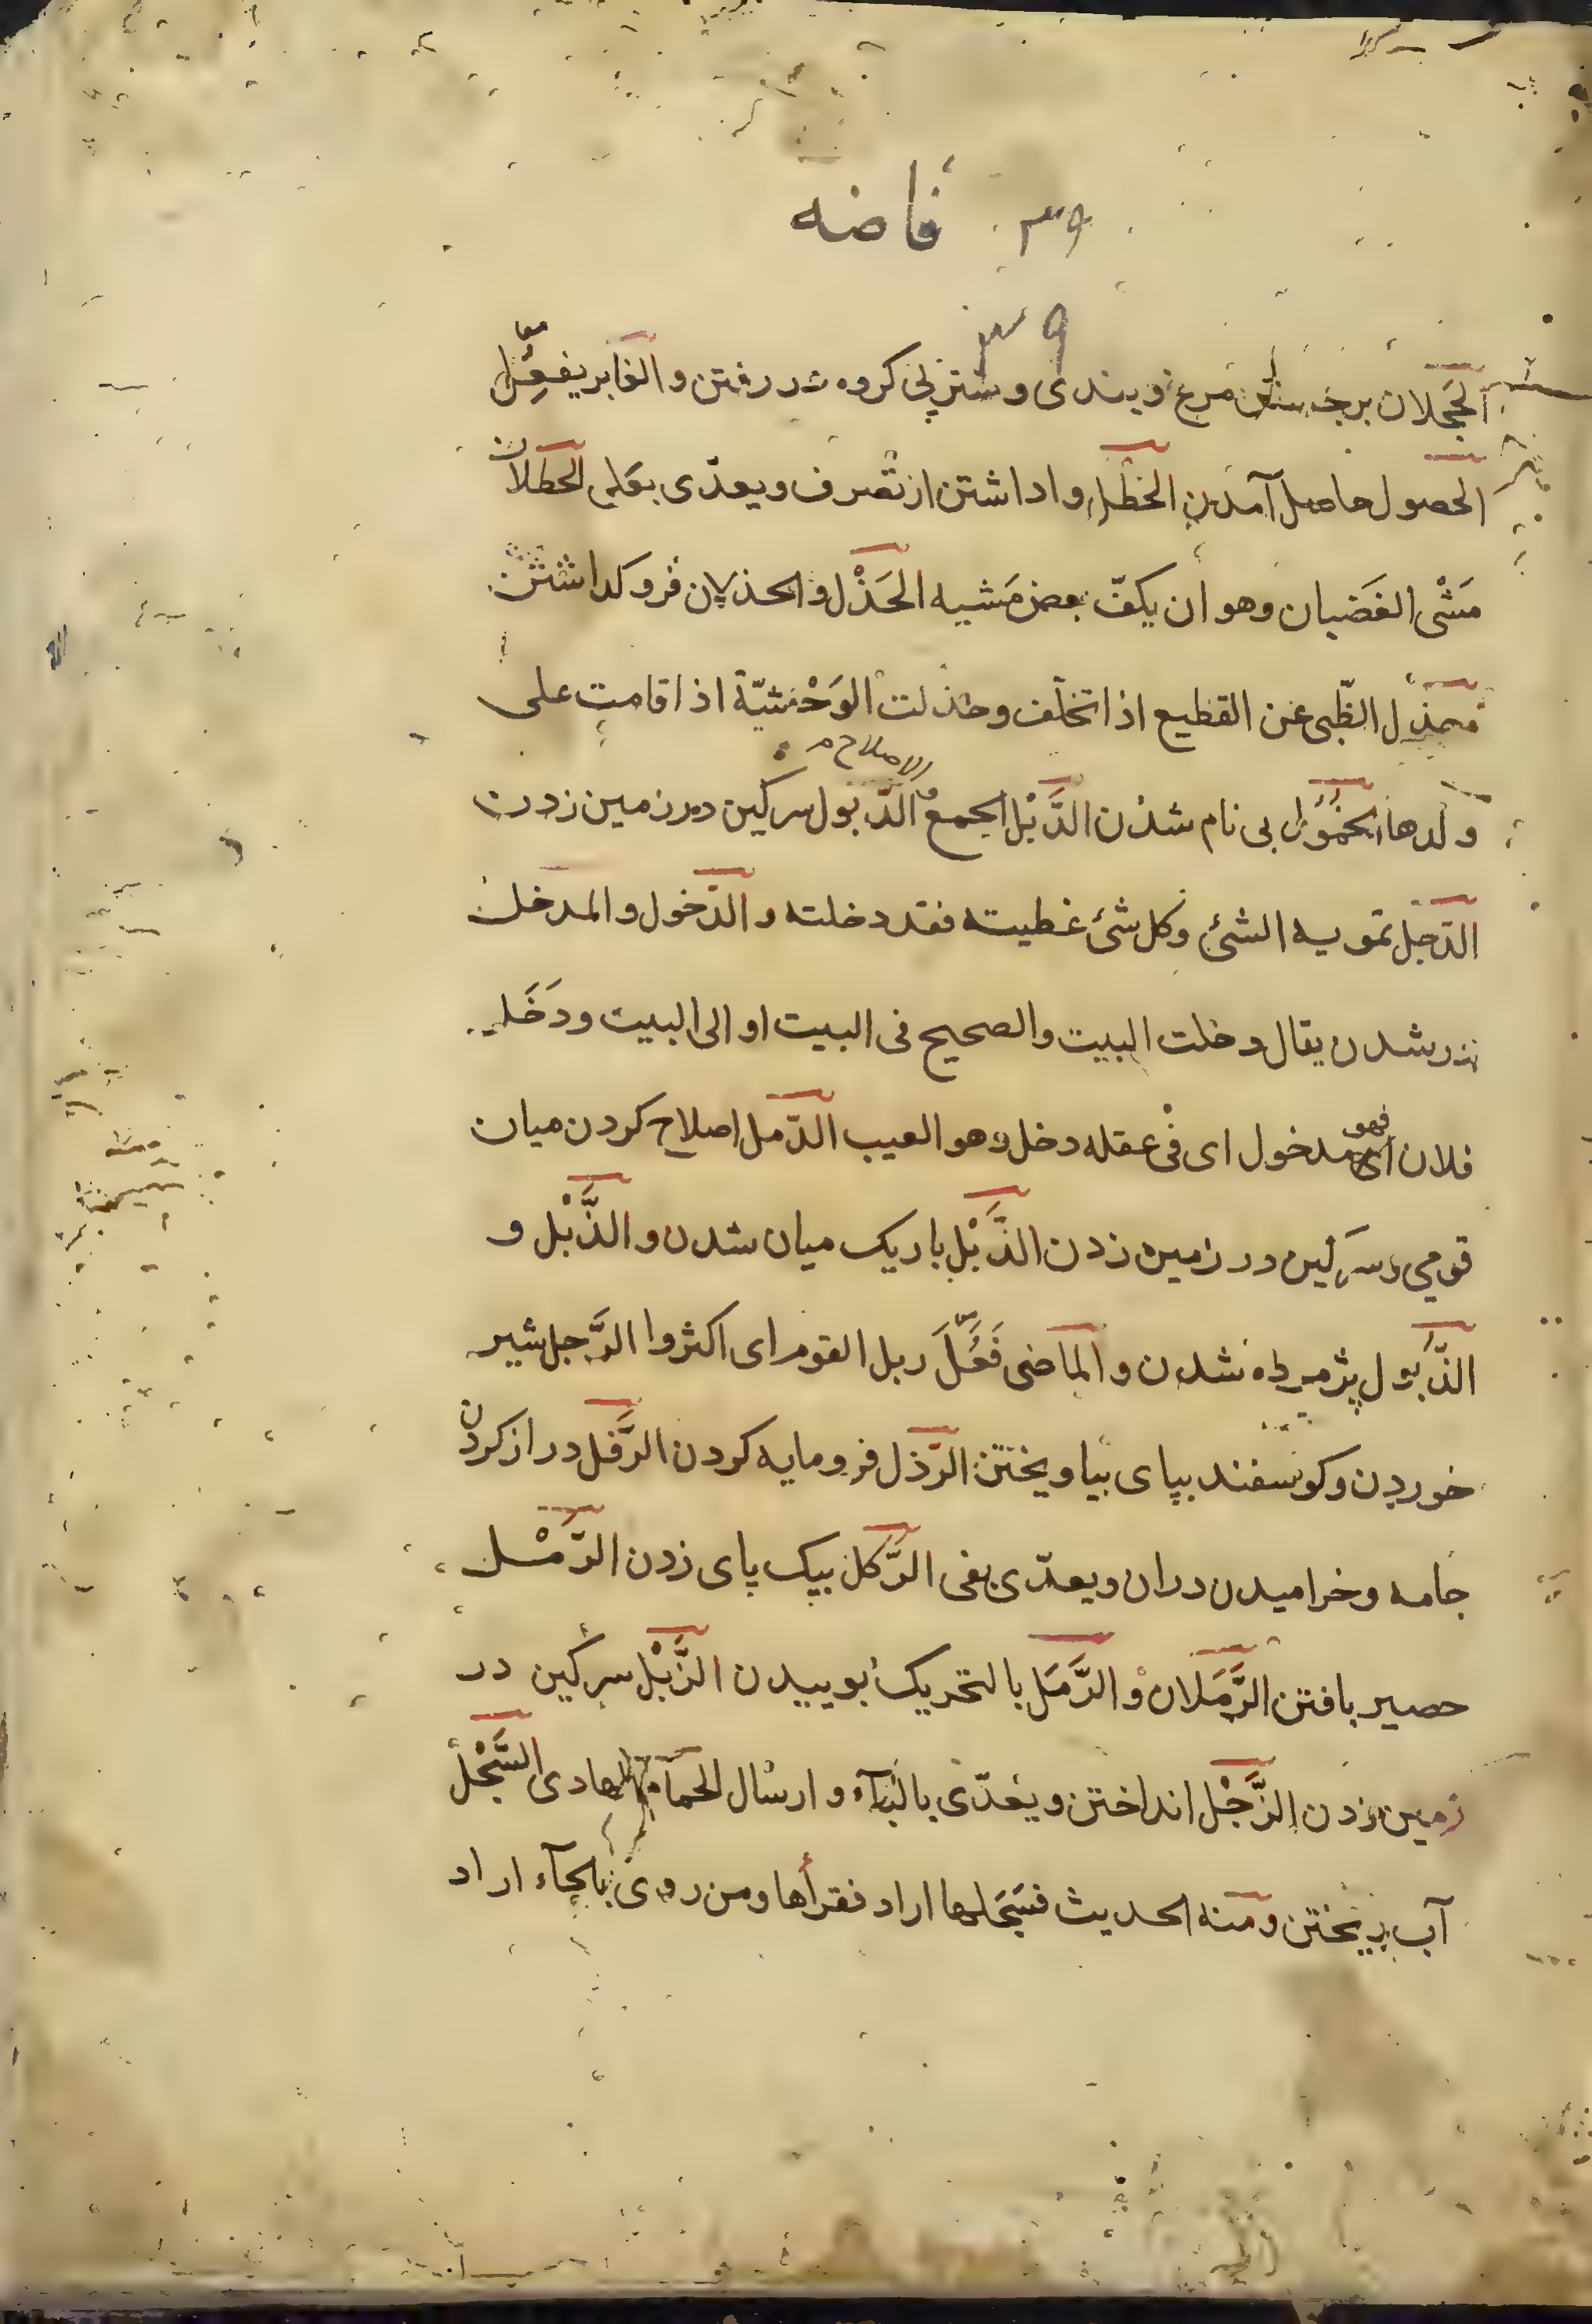 ٣٩ فاضه
٣٩
الحجلان برجستن مرغ و بندی و شتر پی کرده در رفتن و الغابر یفعِل معا
الحصول حاصل آمدن الحظل واداشتن از تصرف و یعدّی بعلی الحظلان
مَشْی الغَضبان وهو ان یکفّ بعض مَشیه الخَذْل و الخذلان فروکداشتن
خذل الظّبی عن القطیع اذا تخلّف و خذلت الوَحْشیّة اذا اقامت علی
ولدها الخمُول بی نام شدن الدَّبْل الجمع و الاصلاح الدّبول سرکین در زمین زدن
الدّجل تمویه الشئ و کل شئ غطیته فقد دجلته و الدّخول و المدخل
در شدن یقال دخلت البیت والصحیح فی البیت او الی البیت و دَخَل
فلان فهو مدخول ای فی عقله دخل و هو العیب الدّمل اصلاح کردن میان
قومی و سرکین در زمین زدن الذَّبْل باریک میان شدن و الذَّبْل و
الذُّبول پژمرده شدن و الماضی فَعُلَ ربل القوم ای اکثروا الرَّجل شیر
خوردن و کوسفند بپای بیاویختن الرّذل فرومایه کردن الرَّفل دراز کردن
جامه و خرامیدن دران و یعدّی بفی الرَّکل بیک پای زدن الرَّمْل
حصیر بافتن الرَّمَلان و الرَّمَل بالتحریک بوییدن الزَّبْل سرکین در
زمین زدن الزَّجْل انداختن و یعدّی بالبآء و ارسال الحمام الهادی السَّجْل
آب ریختن و منه الحدیث فسَجَلها اراد فقرأها و من روی بالحآء اراد